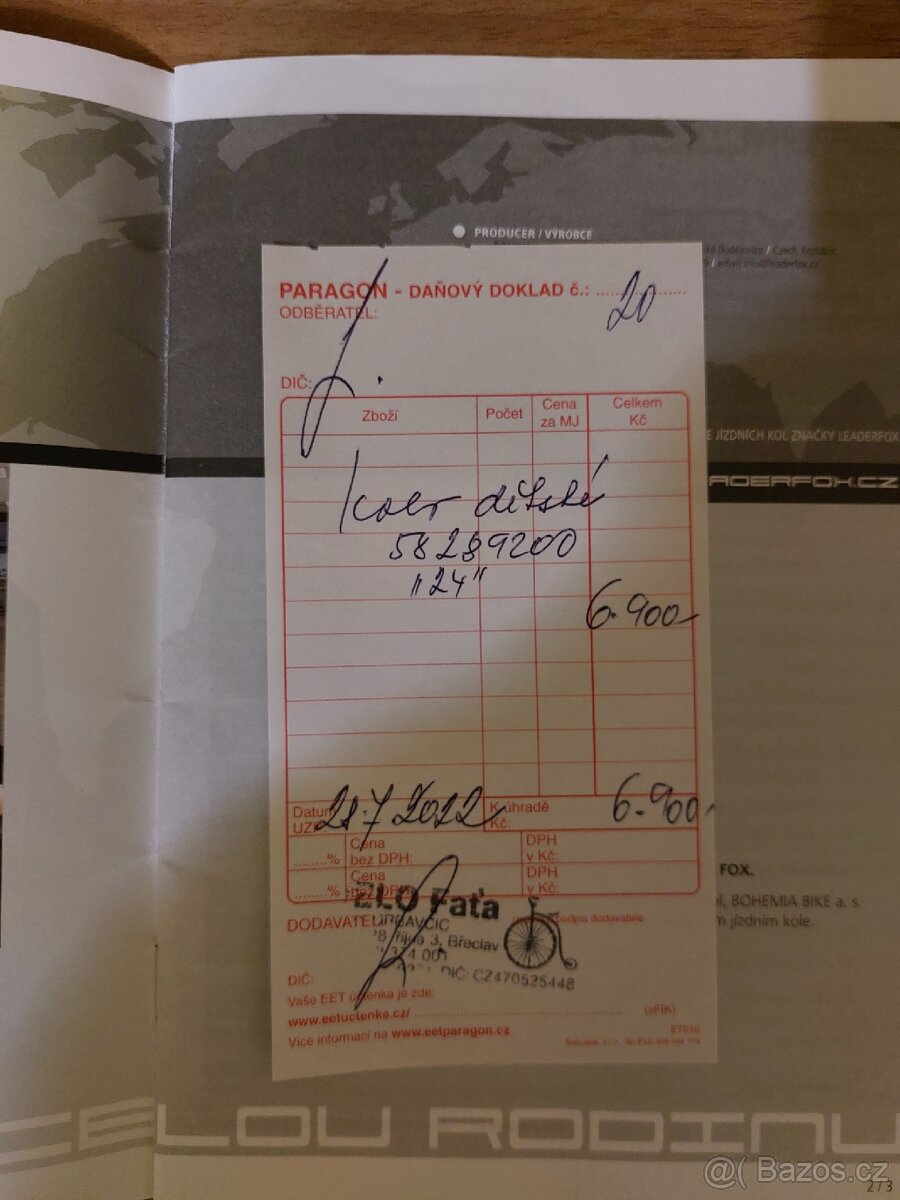 PRODUCER / VÝROBCE
Czech Republic
email: info@leaderfox.cz
PARAGON - DAŇOVÝ DOKLAD č.: 20
ODBĚRATEL:
DIČ:
Zboží Počet Cena za MJ Celkem Kč
E JÍZDNÍCH KOL ZNAČKY LEADERFOX
ADERFOX.CZ
kolo dětské
58289200
"24"
6.900,-
Datum UZP 28.7.2022 K úhradě Kč: 6.900,-
......% Cena bez DPH: DPH v Kč:
......% Cena bez DPH: DPH v Kč:
FOX.
ol, BOHEMIA BIKE a. s.
m jízdním kole.
ELO Faťa
DODAVATEL: podpis dodavatele
října 3, Břeclav
DIČ: CZ470525448
DIČ:
Vaše EET účtenka je zde:
www.eetuctenka.cz/ (sFIK)
Více informací na www.eetparagon.cz
ET010
CELOU RODINU
@( Bazos.cz
2 / 3